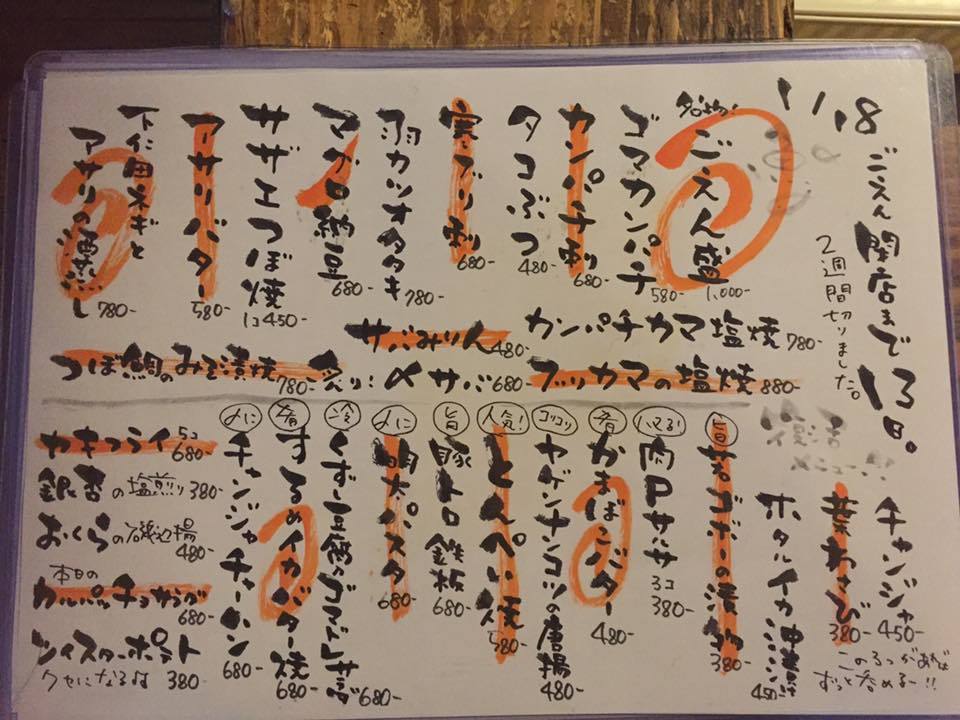 1/18
ごえん開店まで13日。
2週間切りました。
名物!
ごえん盛 1,000-
ゴマカンパチ 580-
カンパチ刺 680-
タコぶつ 480-
寒ブリ刺 680-
羽カツオタタキ 780-
マグロ納豆 680-
サザエつぼ焼 1コ450-
アーサリバター 580-
下仁田ネギと
アサリの酒蒸し 780-
カンパチカマ塩焼 780-
サバみりん 480-
ブリカマの塩焼 880-
〆サバ 680-
つぼ鯛のみそ漬焼 780-
復活
メニュー
チャンジャ 450-
葉わさび 380-
ホタルイカ沖漬け 450-
この3つがあれば
ずっと呑めるー!!
旨
若ゴボーの漬物 380-
ハマる!
肉ロサーサ 3コ 380-
肴
かまぼこバター 480-
コリコリ
ヤゲンナンコツの唐揚 480-
人気!
とんぺい焼 580-
旨
豚トロ鉄板 680-
〆に
明太パスタ 680-
冷
くずし豆腐とトマトのサラダ 680-
肴
するめイカバター焼 680-
〆に
チャンジャチャーハン 680-
カキフライ 5コ 680-
銀杏の塩煎り 380-
おくらの磯辺揚 480-
本日の
カルパッチョサラダ 680-
ツイスターポテト
クセになるな 380-